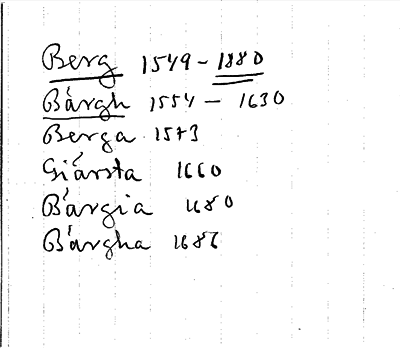 Berg 1549 - 1880
Bårgh 1554 - 1630
Berga 1573
Giårsta 1660
Bårgia 1680
Bårgha 1686